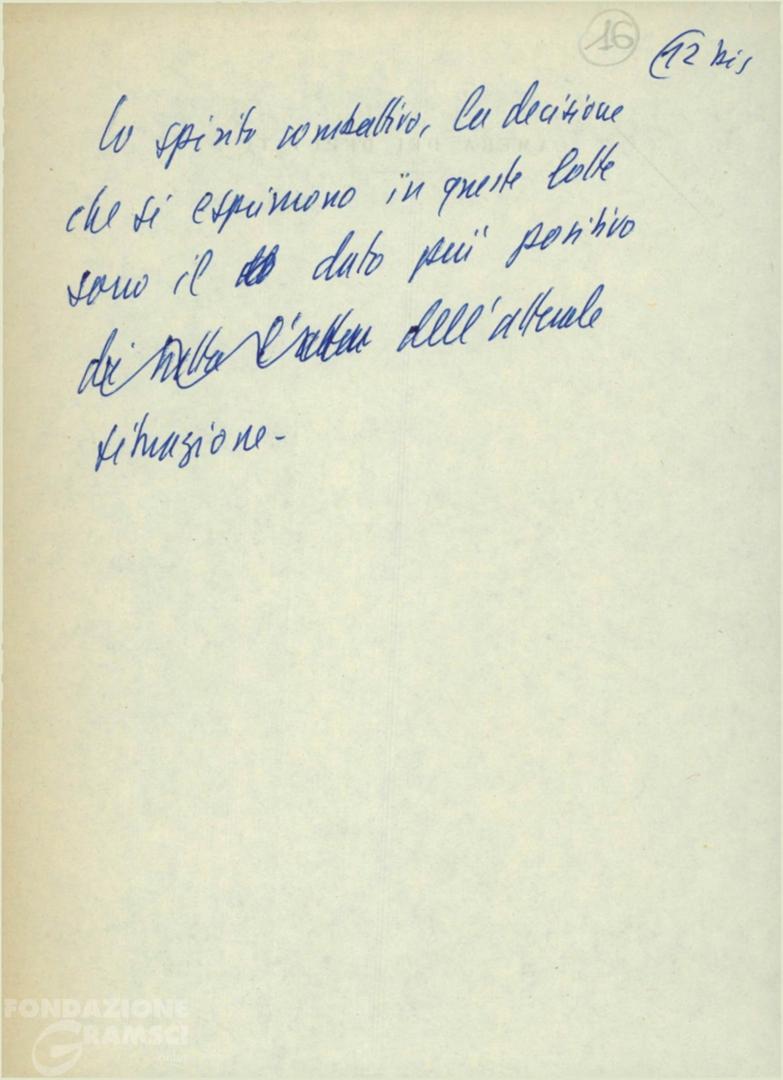 16
12 bis
Lo spirito combattivo, la decisione
che si esprimono in queste lotte
sono il dato più positivo
di tutta l'attua dell'attuale
situazione -
FONDAZIONE
GRAMSCI